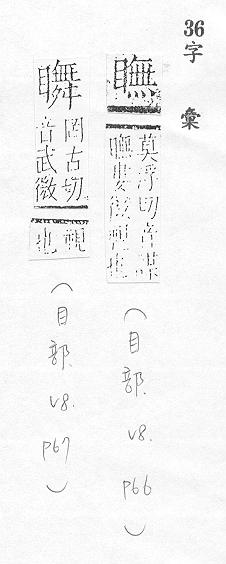 36
字彙
瞴
莫浮切音謀
瞴婁微視也
(目部. v8. p66)
罔古切
音武微
視
也
(目部. v8. p67)